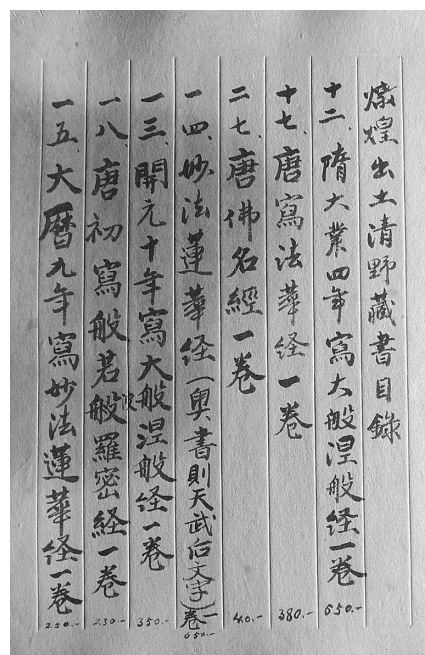 燉煌出土清野藏書目錄
十二、隋大業四年寫大般涅般经一巻 650.-
十七、唐寫法華经一巻 380.-
二七、唐佛名經一巻 40.-
一四、妙法蓮華经(奥書則天武后文字)一巻 650.-
一三、開元十年寫大般涅般经一巻 350.-
一八、唐初寫般若般波羅密経一巻 230.-
一五、大曆九年寫妙法蓮華经一巻 250.-